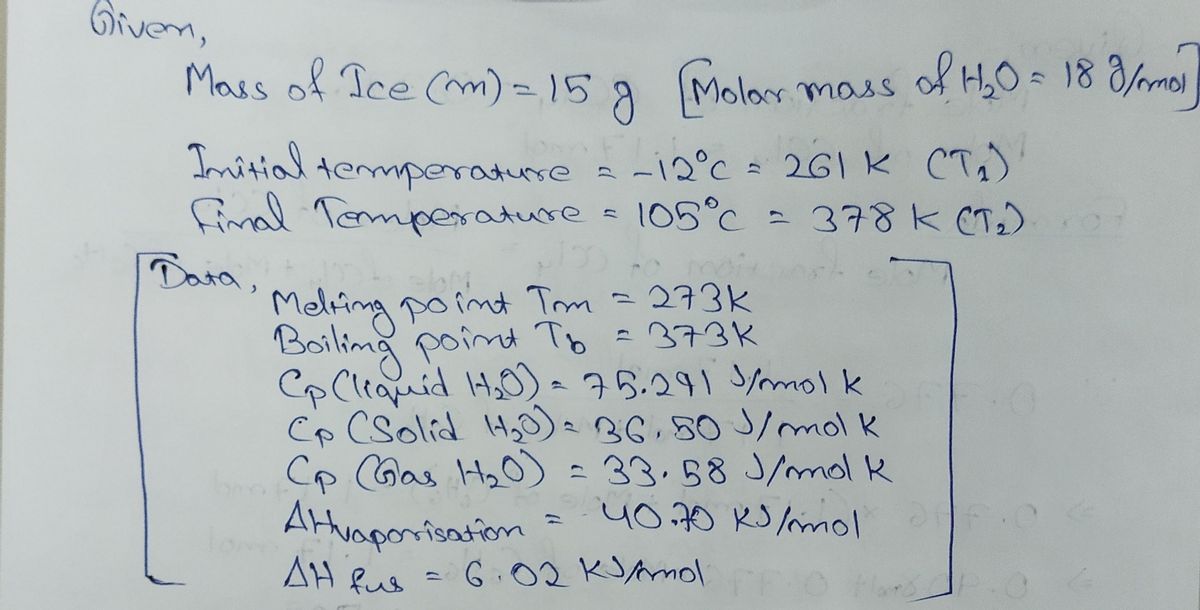 Given,
Mass of Ice (m) = 15 g [Molar mass of H₂O = 18 g/mol]
Initial temperature = -12°C = 261 K (T₁)
Final Temperature = 105°C = 378 K (T₂)
[Data,
Melting point Tm = 273K
Boiling point Tb = 373K
Cp (liquid H₂O) = 75.291 J/mol K
Cp (Solid H₂O) = 36.50 J/mol K
Cp (Gas H₂O) = 33.58 J/mol K
ΔHvaporisation = 40.70 KJ/mol
ΔH fus = 6.02 KJ/mol]